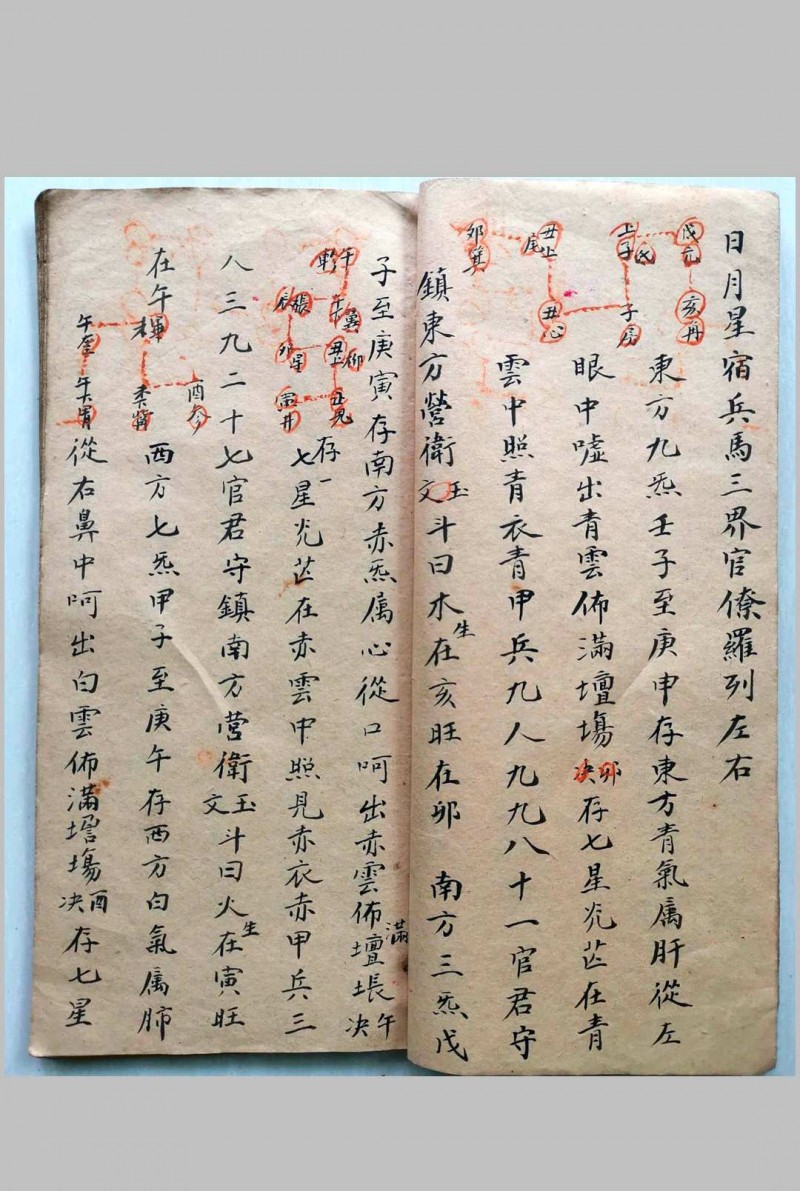 日月星宿兵馬三界官僚羅列左右
東方九炁壬子至庚申存東方青氣属肝從左
眼中嘘出青雲佈滿壇塲卯决存七星光芒在青
雲中照青衣青甲兵九人九九八十一官君守
鎮東方營衛玉文斗曰木生在亥旺在卯 南方三炁戊
子至庚寅存南方赤炁属心從口呵出赤雲佈滿壇塲午决
存一七星光芒在赤雲中照見赤衣赤甲兵三
人三九二十七官君守鎮南方營衛玉文斗曰火生在寅旺
在午 西方七炁甲子至庚午存西方白氣属肺
從右鼻中呵出白雲佈滿壇塲酉决存七星